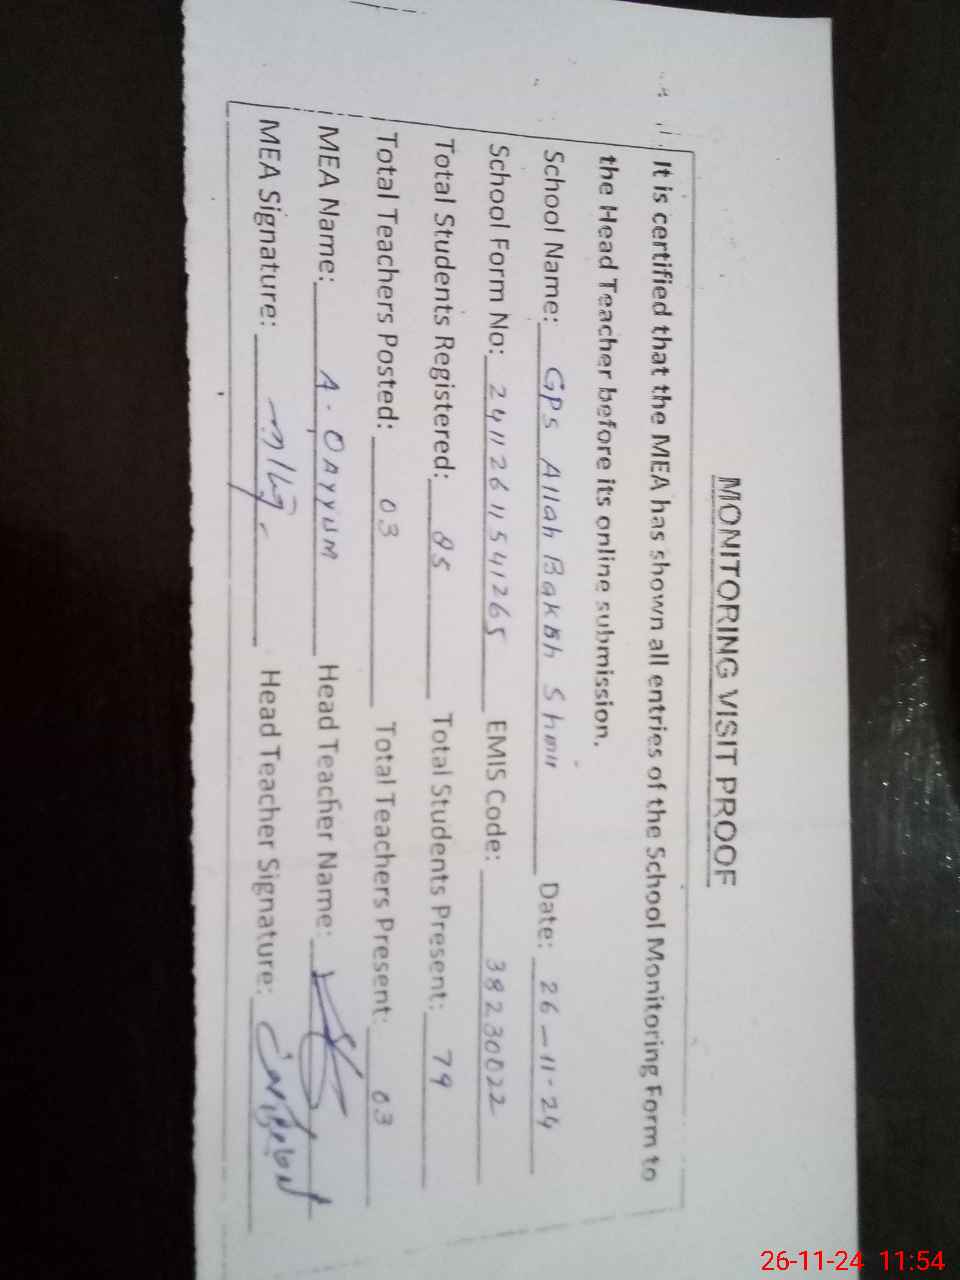 MONITORING VISIT PROOF
It is certified that the MEA has shown all entries of the School Monitoring Form to
the Head Teacher before its online submission.
School Name: GPS Allah Bakhsh Date: 26-11-24
School Form No: 24112611541265 EMIS Code: 38230022
Total Students Registered: 85 Total Students Present: 79
Total Teachers Posted: 03 Total Teachers Present: 03
MEA Name: A. QAYYUM Head Teacher Name:
MEA Signature: Head Teacher Signature:
26-11-24 11:54